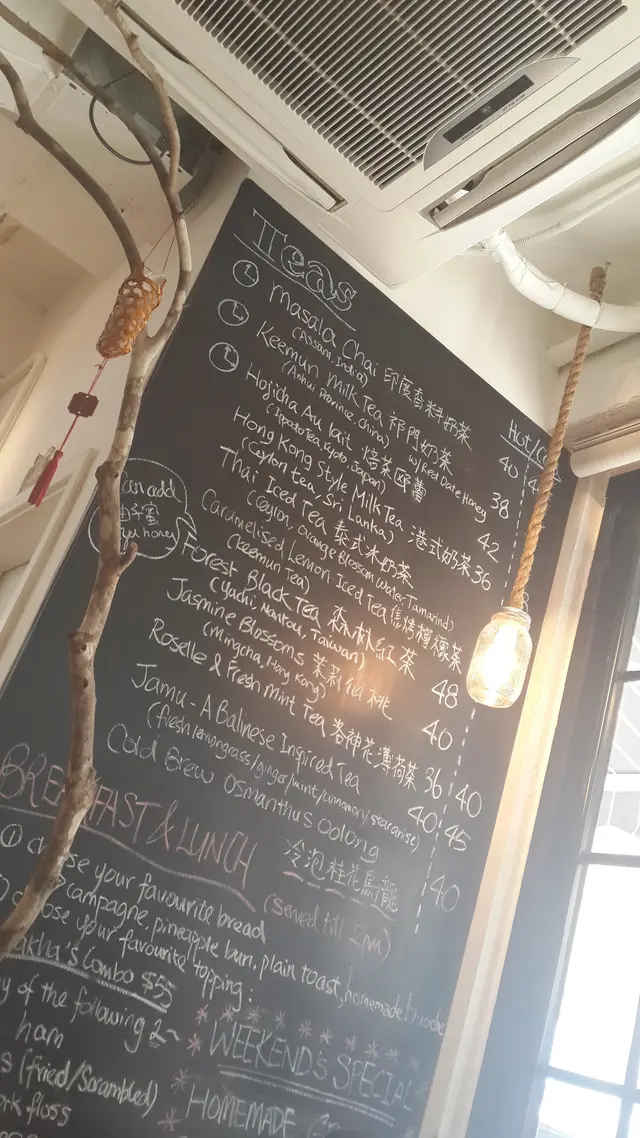 Teas
Hot/
Masala Chai 印度香料奶茶 40
(Assam, India)
Keemun Milk Tea 祁門奶茶 38
(Anhui Province, China) w/Red Date Honey
Hojicha Au lait 焙茶歐蕾 42
Kyoto, Japan)
Hong Kong Style Milk Tea 港式奶茶 36
(Ceylon tea, Sri Lanka)
Thai Iced Tea 泰式冰奶茶
(Ceylon, Orange Blossom Water, Tamarind)
Caramelised Lemon Iced Tea 焦糖檸檬茶
(Keemun Tea)
Forest Black Tea 森林紅茶 48
(Yuchi, Nantou, Taiwan)
Jasmine Blossoms 茉 仙桃 40
(Mingcha, Hong Kong)
Roselle & Fresh Mint Tea 洛神花薄荷茶 36 40
Jamu - A Balinese Inspired Tea 40 45
(fresh lemongrass/ginger/mint/cinnamon/star anise)
Cold Brew Osmanthus Oolong 40
冷泡桂花烏龍
an add
柚子蜜
honey
BREAKFAST & LUNCH (served till 2pm)
① choose your favourite bread
campagne, pineapple bun, plain toast, homemade brioche
choose your favourite topping:
akha's Combo $55
of the following 2~
ham
(fried/Scrambled)
floss
WEEKEND'S SPECIAL
HOMEMADE